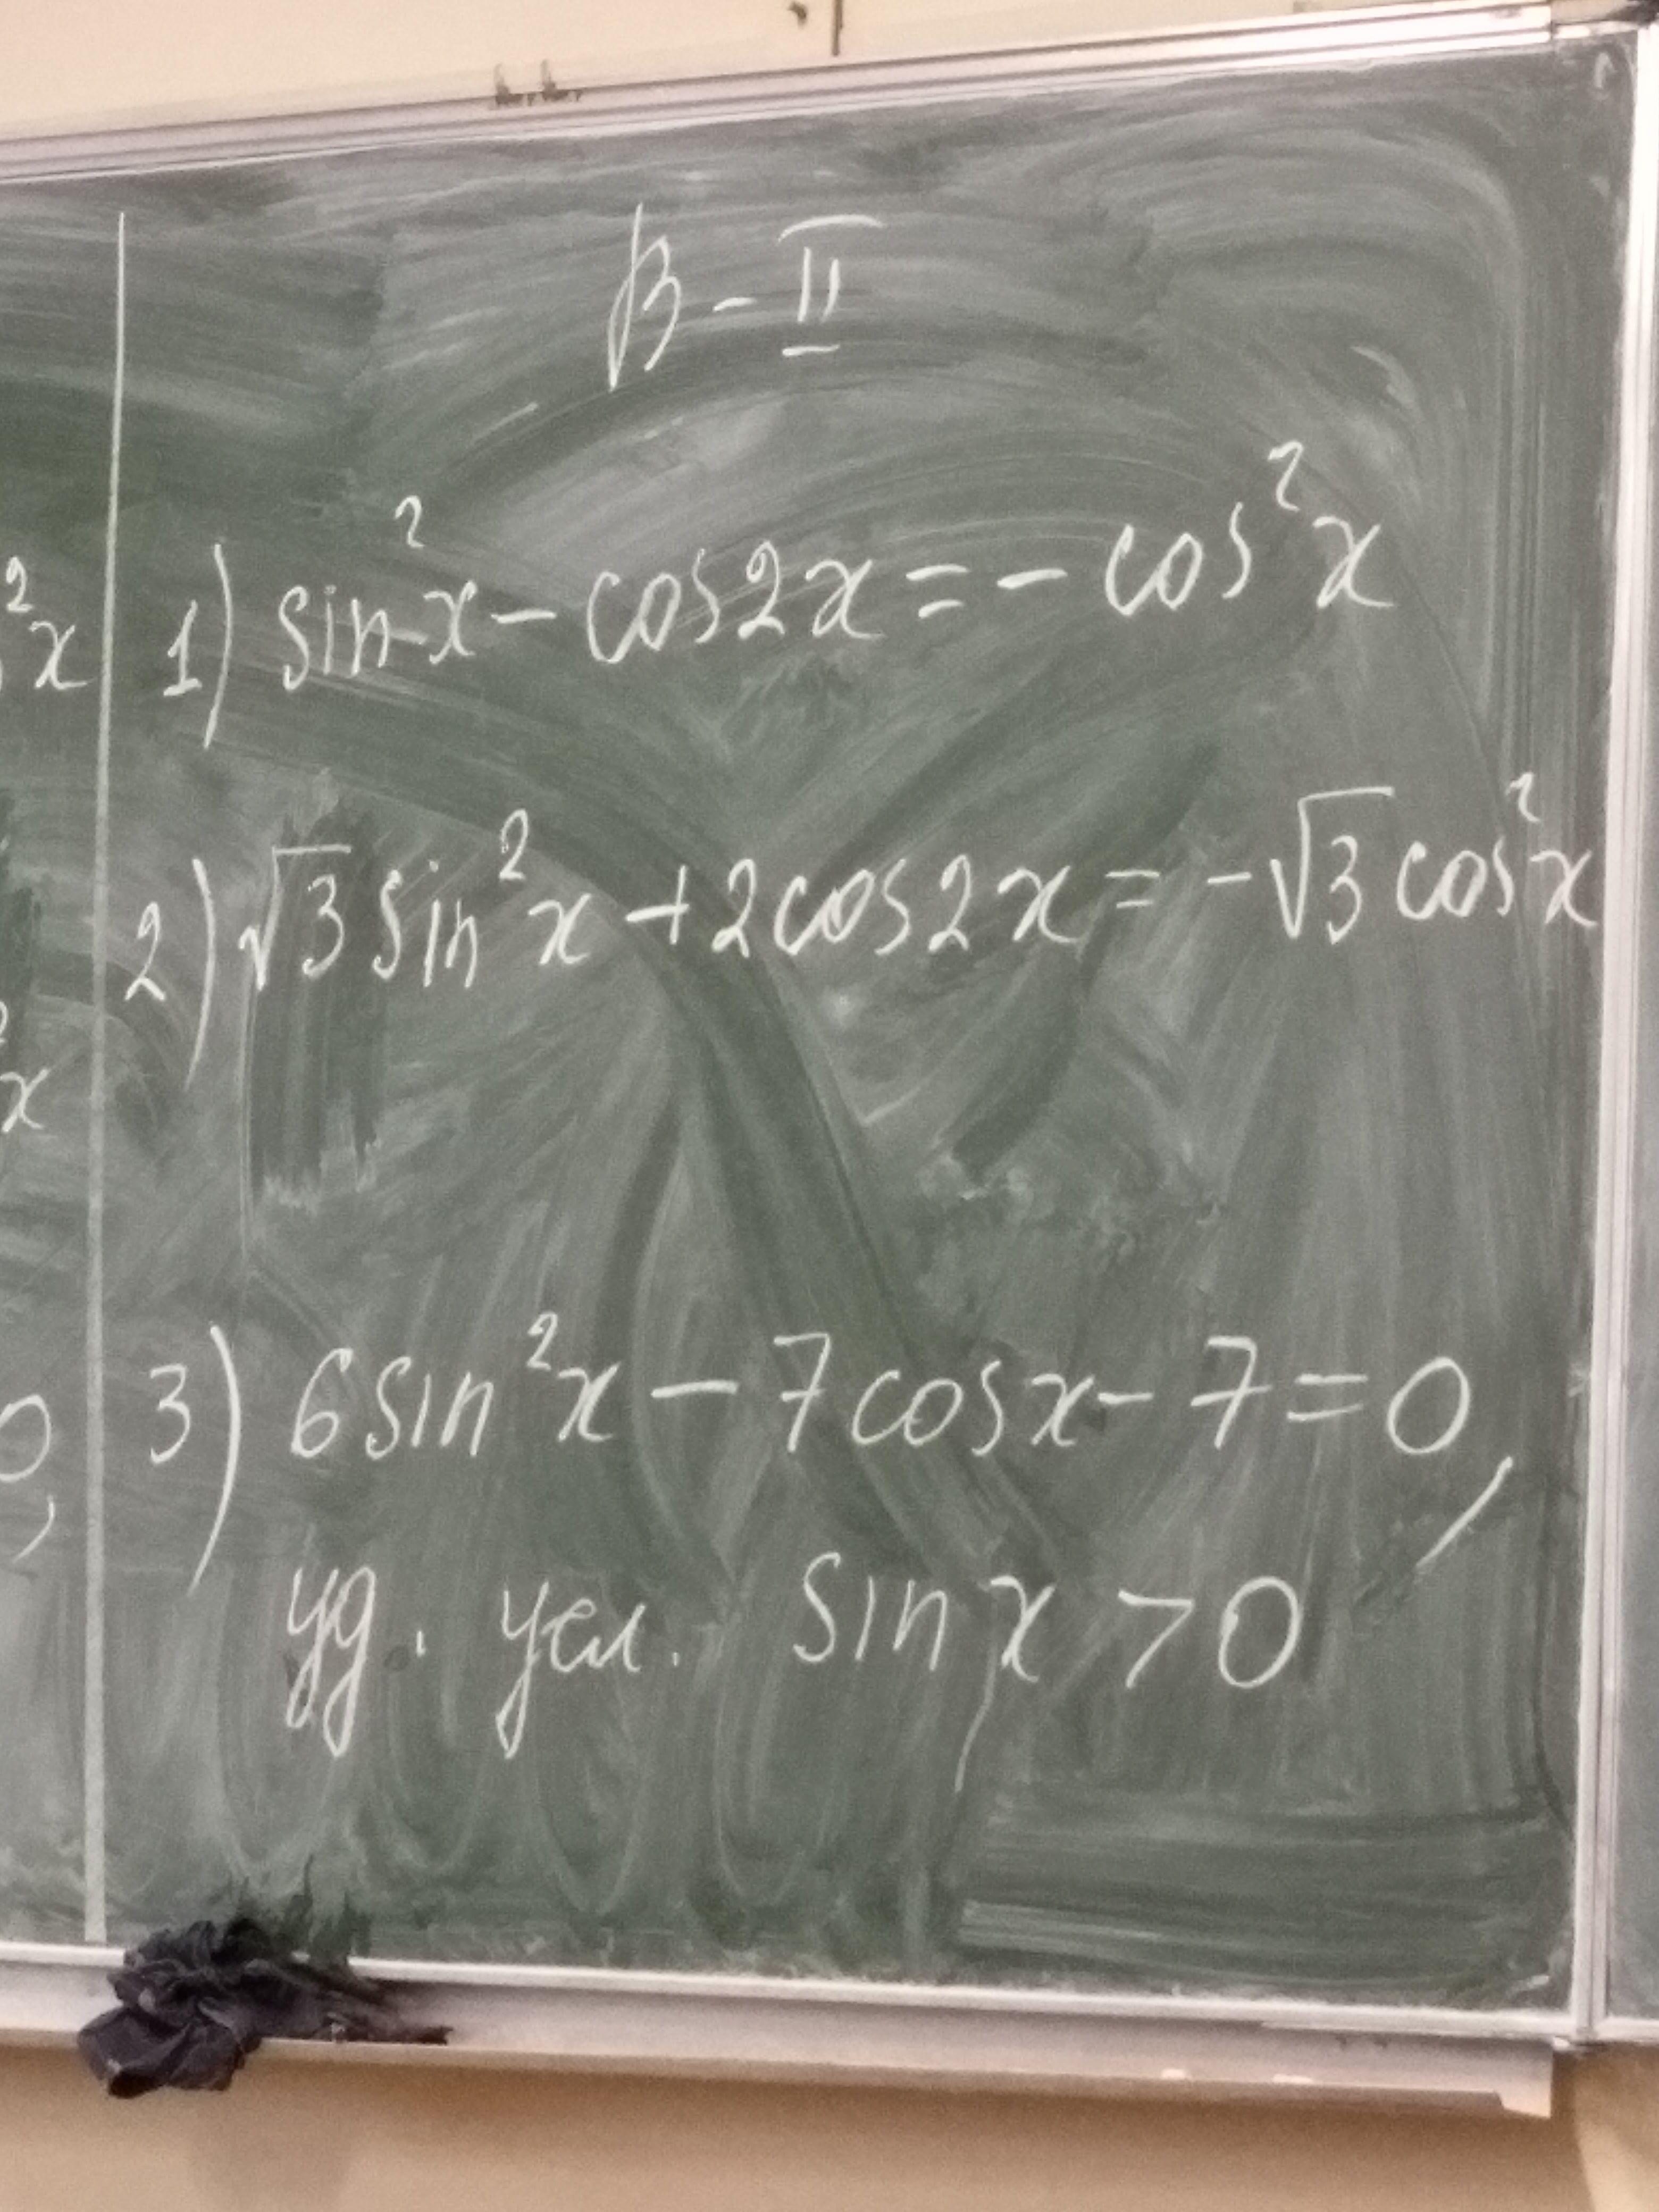 В-II
²x
1) sin²x - cos2x = - cos²x
2) √3 sin²x + 2cos2x = -√3 cos²x
²x
0,
3) 6sin²x - 7cosx - 7 = 0,
уд. усл. sin x > 0